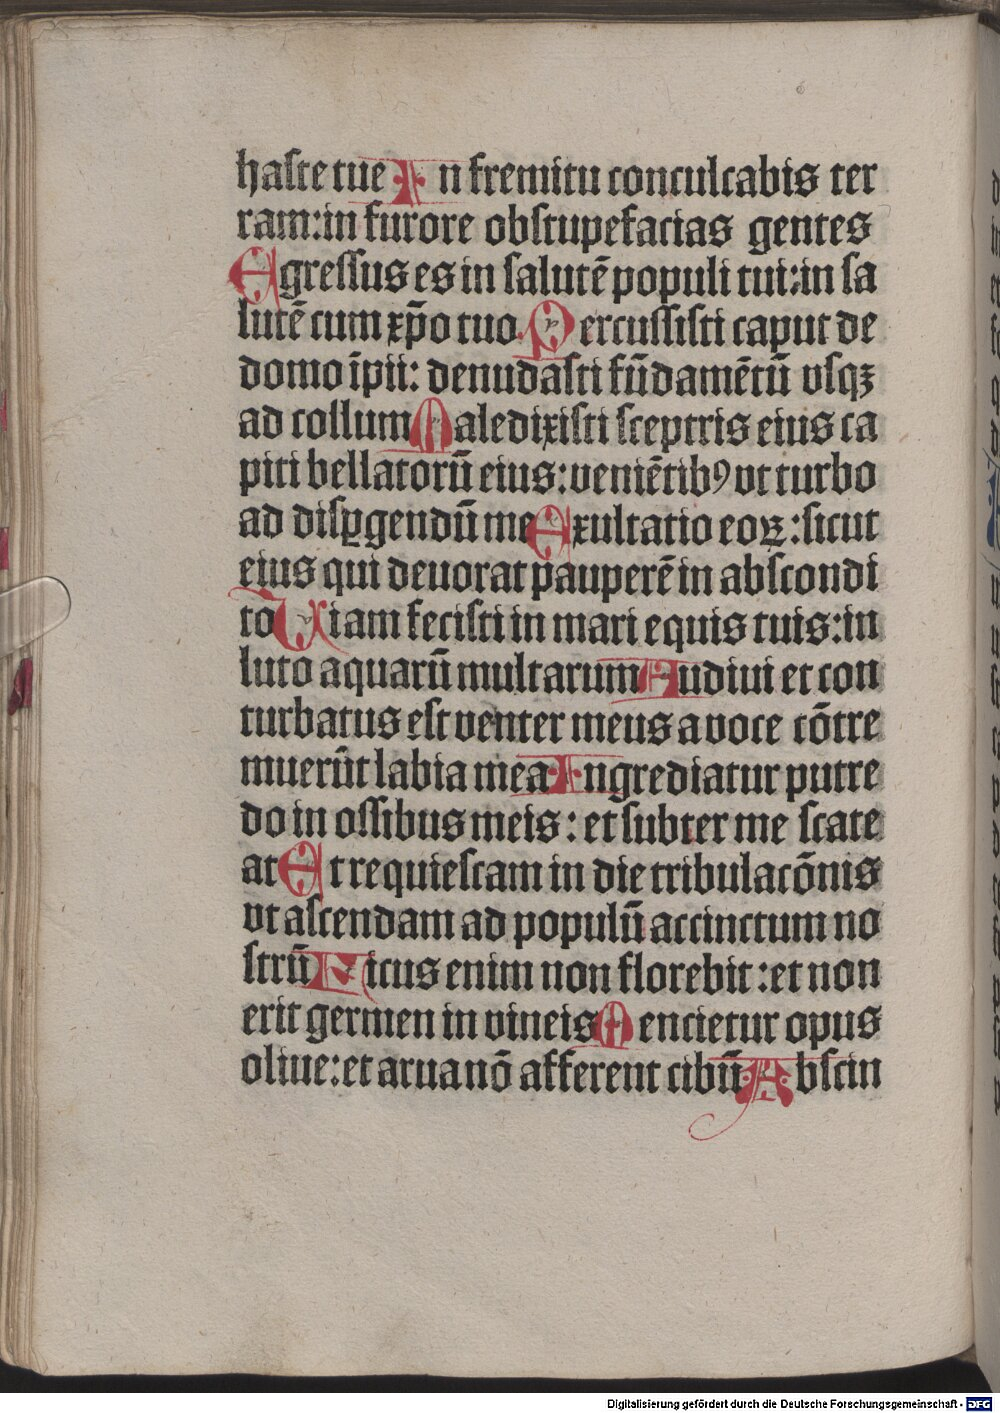 haſte tue In fremitu conculcabis ter
ram:in furore obſtupefacias gentes
Egreſſus es in ſalutē populi tui:in ſa
lutē cum xp̄o tuo Percuſſiſti caput de
domo īpii: denudaſti fūdamētū vſqꝫ
ad collum Maledixiſti ſceptris eius ca
piti bellatorū eius:veniētibꝰ vt turbo
ad diſꝑgendū me Exultatio eoꝝ:ſicut
eius qui deuorat pauperē in abſcondi
to Viam feciſti in mari equis tuis:in
luto aquarū multarum Audiui et con
turbatus eſt venter meus a voce cōtre
muerūt labia mea Ingrediatur putre
do in oſſibus meis: et ſubter me ſcate
at Et requieſcam in die tribulacōnis
vt aſcendam ad populū accinctum no
ſtrū Ficus enim non florebit:et non
erit germen in vineis Mencietur opus
oliue:et arua nō afferent cibū Abſcin
Digitalisierung gefördert durch die Deutsche Forschungsgemeinschaft - DFG